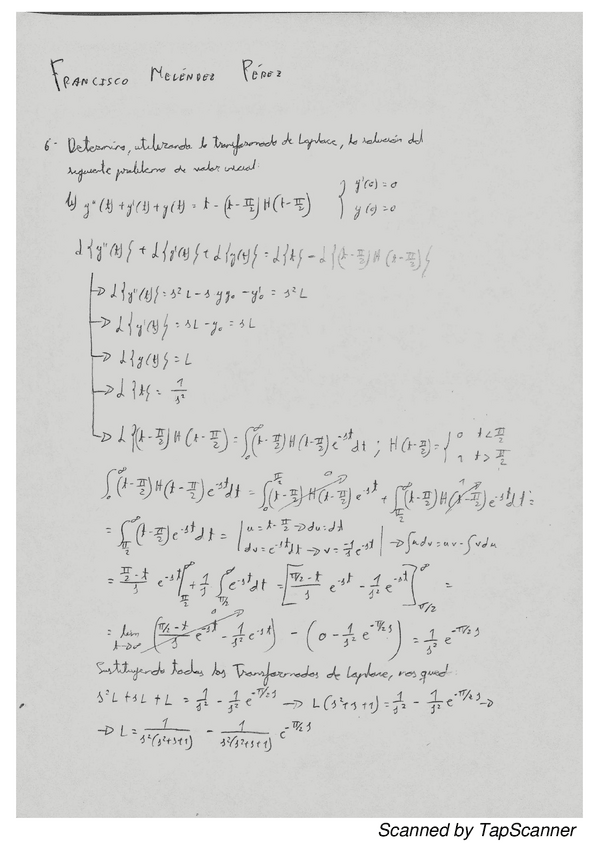 FRANCISCO MELÉNDEZ PÉREZ
6- Determine, utilizando la transformada de Laplace, la solución del
siguiente problema de valor inicial:
b) y''(t) + y'(t) + y(t) = t - (t - π/2) H(t - π/2) { y'(0) = 0
y(0) = 0
L{y''(t)} + L{y'(t)} + L{y(t)} = L{t} - L{(t - π/2) H(t - π/2)}
→ L{y''(t)} = s² L - s y₀ - y'₀ = s² L
→ L{y'(t)} = sL - y₀ = sL
→ L{y(t)} = L
→ L{t} = 1/s²
→ L{(t - π/2) H(t - π/2) = ∫₀^∞ (t - π/2) H(t - π/2) e^(-st) dt ; H(t - π/2) = { 0 t < π/2
1 t > π/2
∫₀^∞ (t - π/2) H(t - π/2) e^(-st) dt = ∫₀^(π/2) (t - π/2) H(t - π/2) e^(-st) + ∫_(π/2)^∞ (t - π/2) H(t - π/2) e^(-st) dt =
= ∫_(π/2)^∞ (t - π/2) e^(-st) dt = | u = t - π/2 → du = dt
dv = e^(-st) dt → v = -1/s e^(-st) | → ∫u dv = uv - ∫v du
= (π/2 - t)/s e^(-st) |_(π/2)^∞ + 1/s ∫_(π/2)^∞ e^(-st) dt = [ (π/2 - t)/s e^(-st) - 1/s² e^(-st) ]_(π/2)^∞ =
= lim t→∞ ( (π/2 - t)/s e^(-st) - 1/s² e^(-st) ) - ( 0 - 1/s² e^(-π/2 s) ) = 1/s² e^(-π/2 s)
Sustituyendo todas las Transformadas de Laplace, nos queda:
s² L + sL + L = 1/s² - 1/s² e^(-π/2 s) → L(s² + s + 1) = 1/s² - 1/s² e^(-π/2 s) →
→ L = 1/(s²(s² + s + 1)) - 1/(s²(s² + s + 1)) e^(-π/2 s)
Scanned by TapScanner